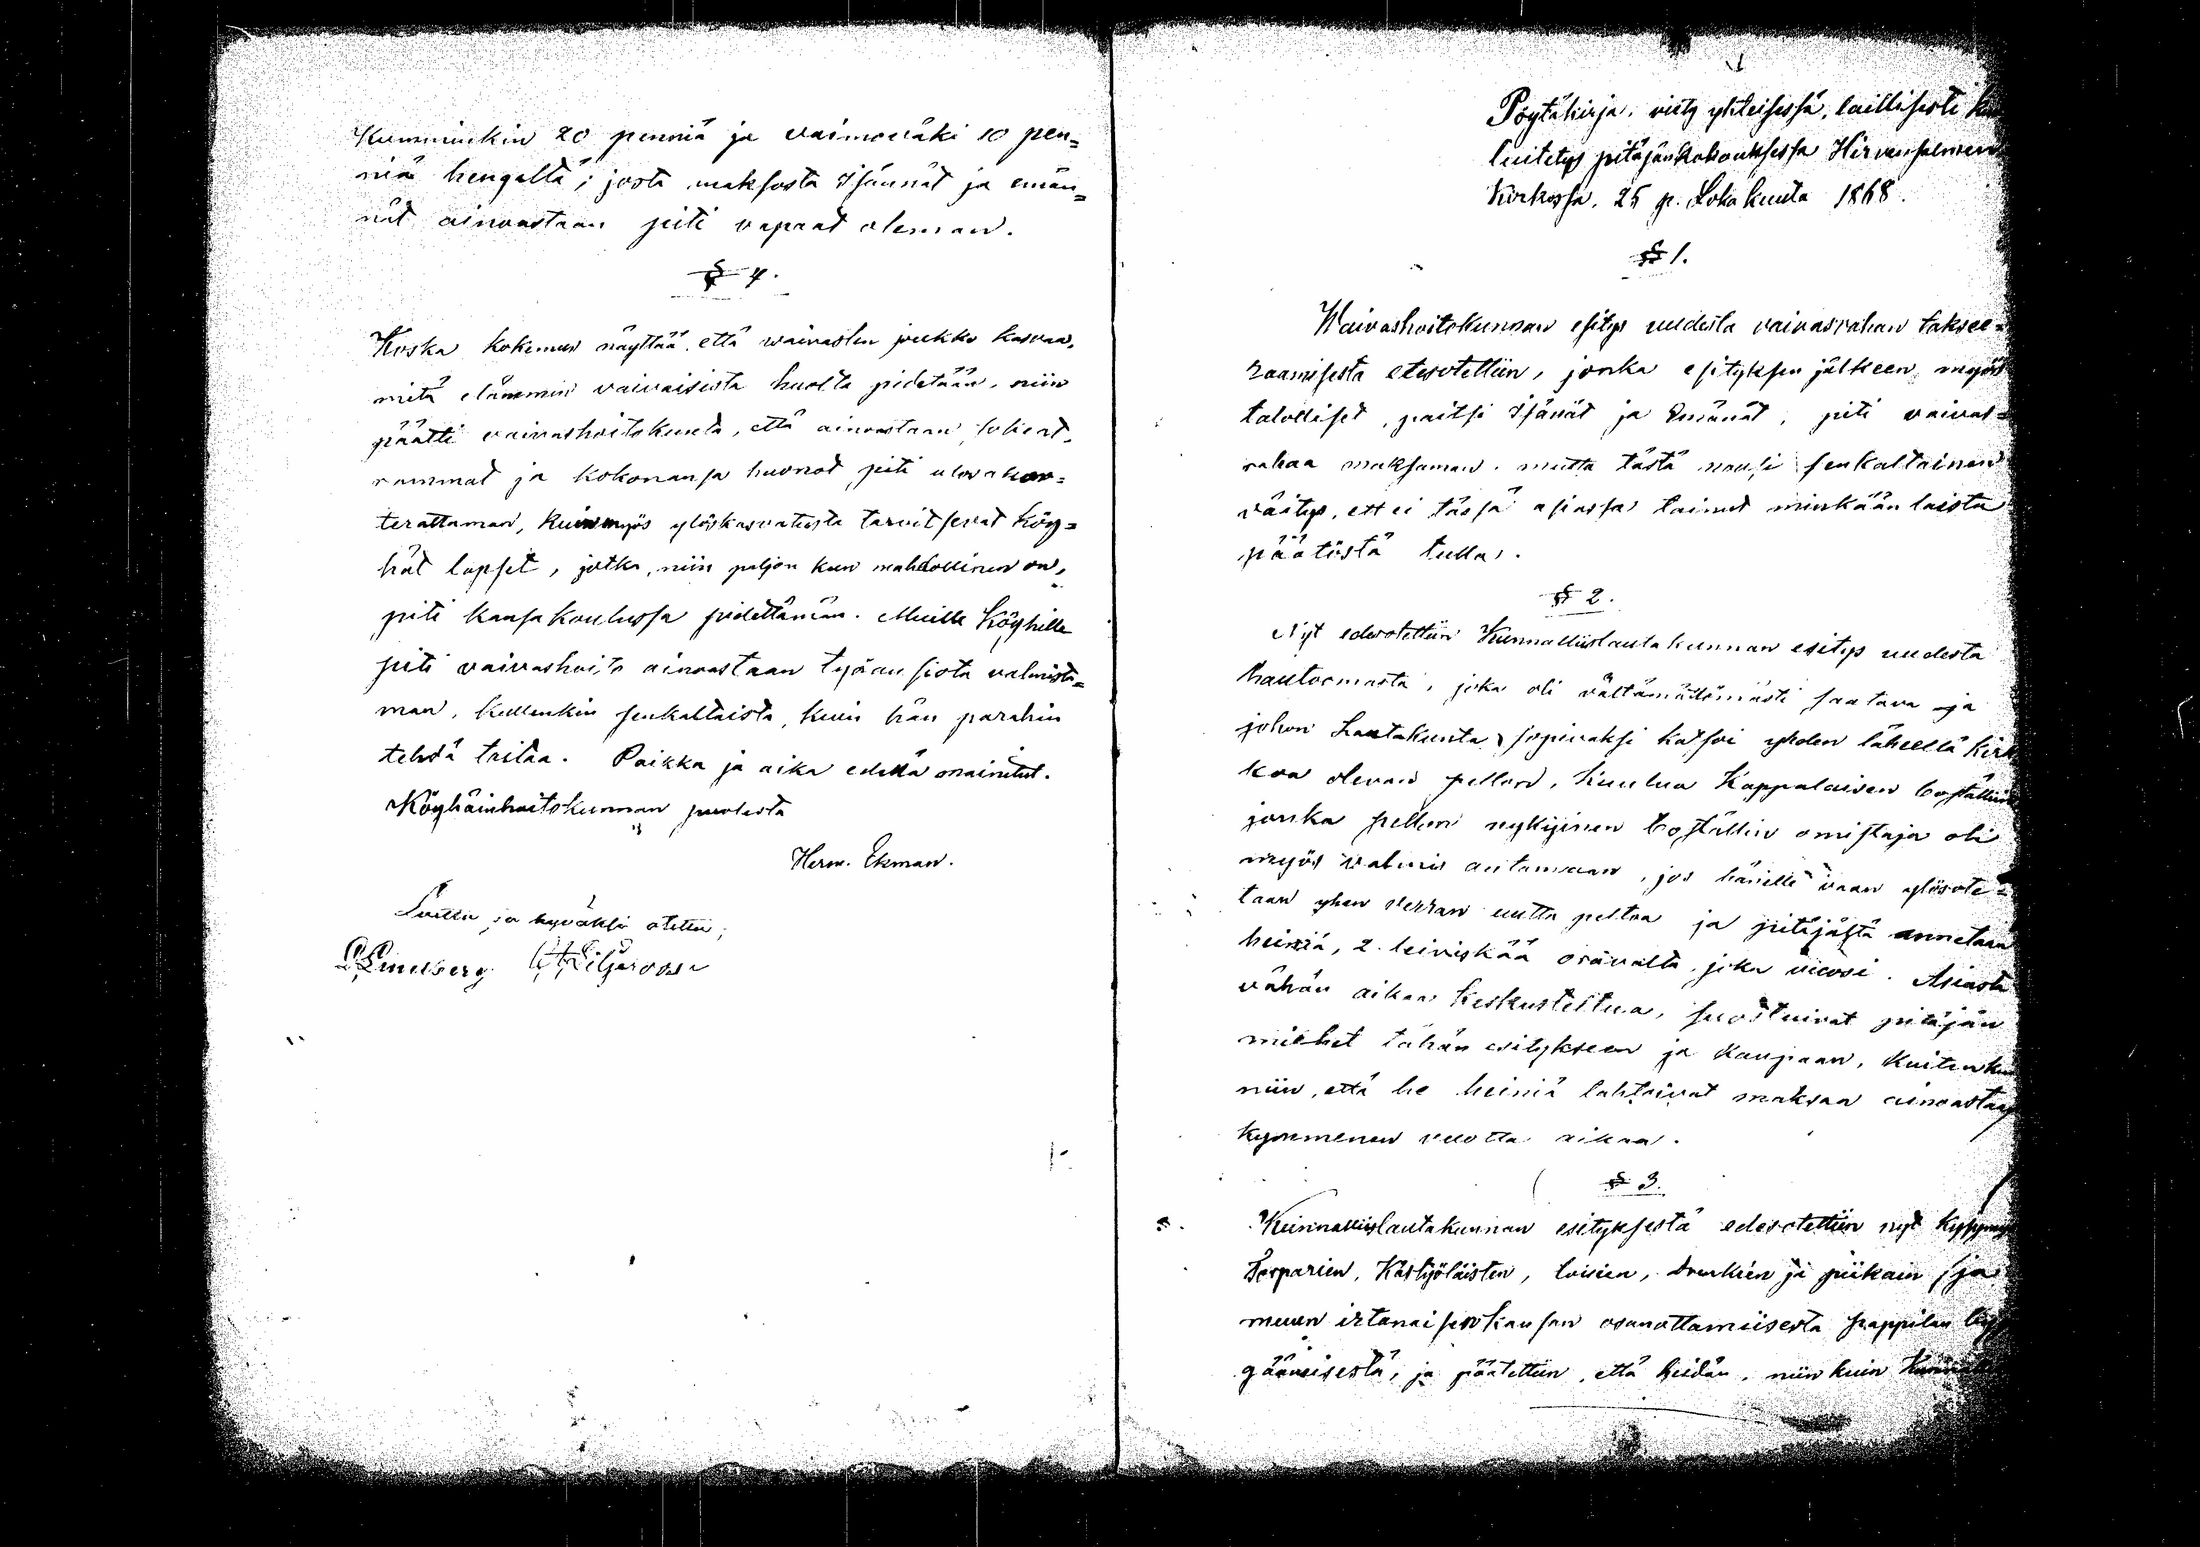 Kumminkin 20 penniä ja vaimoväki 10 pen=
niä hengeltä; josta maksosta Isännät ja emän=
nät ainoastaan piti vapaat oleman.
§ 4.
Koska kokemus näyttää, että waivasten joukko kasvaa,
mitä elämmin vaivaisista huolta pidetään, niin
päätti vaivashoitokunta, että ainoastaan sokeat,
rammat ja kokonansa huonot piti
terattaman, kuin myös ylöskasvatusta tarvitsevat köy=
hät lapset, jotka, niin paljon kun mahdollinen on,
piti kansakoulussa pidettämän. Muille Köyhille
piti vaivashoito ainoastaan työansiota valmista=
man, kullenkin senkaltaista, kuin hän parahin
tehdä taitaa. Paikka ja aika edellä mainitut.
Köyhäinhoitokunnan puolesta
Herm. Ekman.
Luettu ja hyväksi otettu;
Pöytäkirja, piety yhteisessä, laillisesti
luitetys pitäjänkokouksessa Hirvensalmen
Kirkossa, 25 p. Lokakuuta 1868.
§ 1.
Waivashoitokunnan esitys uudesta vaivasrahan taksee=
raamisesta etesotettiin, jonka esityksen jälkeen myös
talolliset, paitsi Isänät ja Emänät, piti vaivas=
rahaa maksaman, mutta tästä nousi senkaltainen
väitys, ett ei tässä asiassa tainut minkäänlaista
päätöstä tulla.
§ 2.
Nyt edesotettiin Kunnallislautakunnan esitys uudesta
hautoomasta, joka oli vältämättömästi saatava ja
johon Lautakunta sopivaksi katsoi yhden läheellä kirk
koa olevan pellon, kuuluva Kappalaisen boställiin
jonka pellon nykyinen boställin omistaja oli
myös valmis antamaan, jos hänelle vaan ylösote=
taan yhen verran uutta peltoa ja pitäjästä annetaan
heiniä, 2 leiviskää oravalta, joka vuosi. Asiasta
vähän aikaa keskusteltua, suostuivat pitäjän
miehet tähän esitykseen ja kaupaan, kuitenkin
niin, että he heiniä lahtoivat maksaa ainoastaan
kymmenen vuotta aikaa.
§ 3.
Kunnallislautakunnan esityksestä edesotettiin nyt kysymys
Torparien, Käsityöläisten, loisien, Drenkien ja piikain ja
muun irtanaisen kansan osanottamisesta pappilan
gäämisestä, ja päätettiin, että heidän, niin kuin